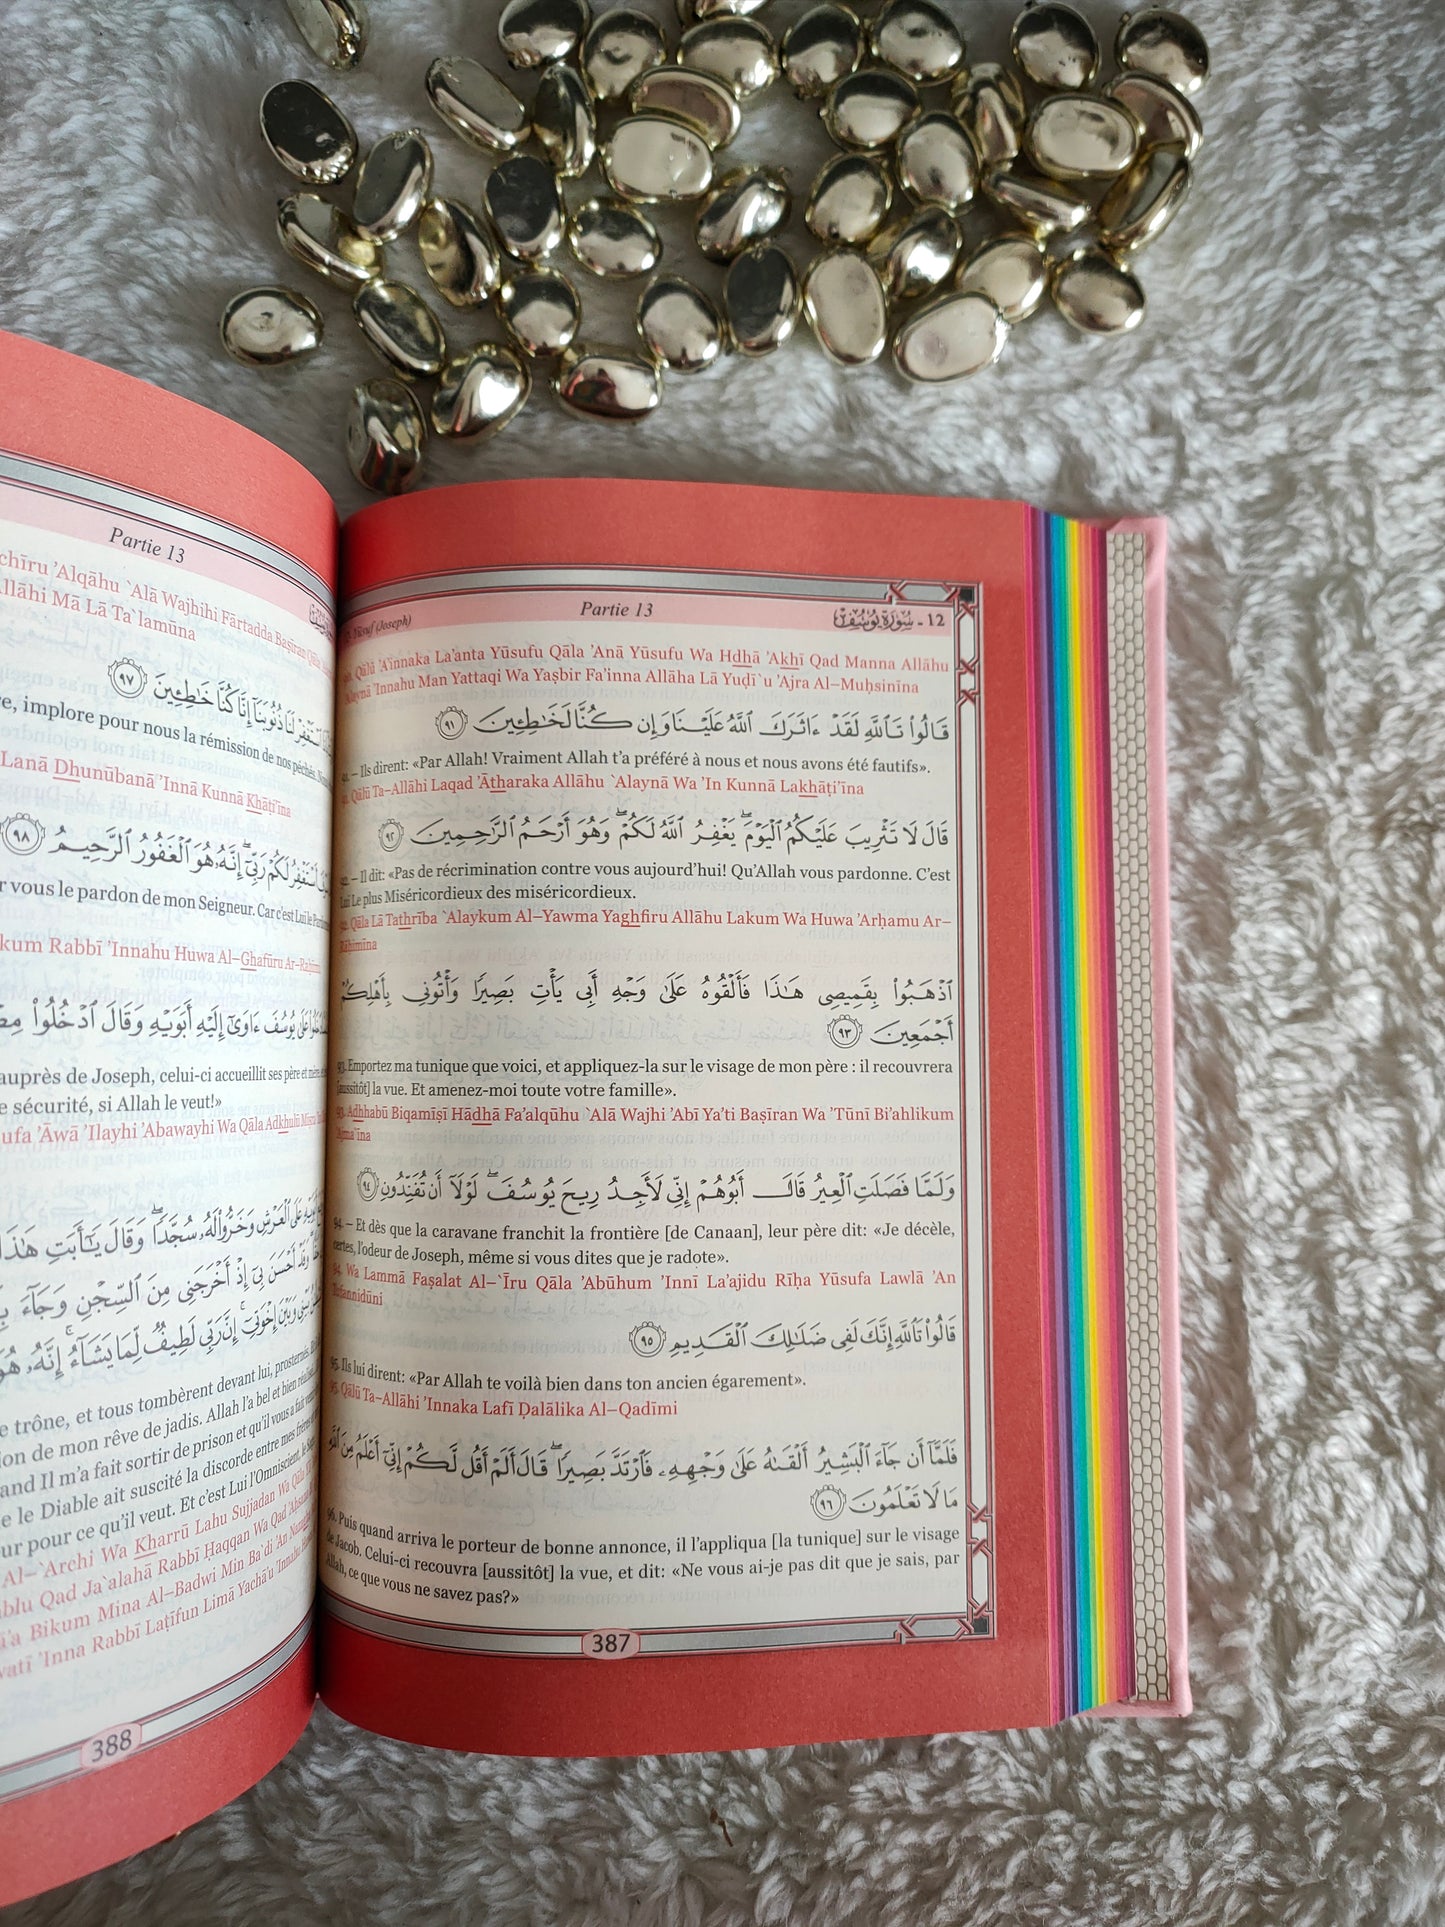 12. Yūsuf (Joseph)
Partie 13
12 - سُورَةُ يُوسُفَ
90. Qālū 'A'innaka La'anta Yūsufu Qāla 'Anā Yūsufu Wa Hdhā 'Akhī Qad Manna Allāhu
`Alaynā 'Innahu Man Yattaqi Wa Yaşbir Fa'inna Allāha Lā Yuḍī`u 'Ajra Al–Muḥsinīna
قَالُوا۟ تَٱللَّهِ لَقَدْ ءَاثَرَكَ ٱللَّهُ عَلَيْنَا وَإِن كُنَّا لَخَـٰطِـِٔينَ ٩١
91. – Ils dirent: «Par Allah! Vraiment Allah t'a préféré à nous et nous avons été fautifs».
91. Qālū Ta–Allāhi Laqad 'Ātharaka Allāhu `Alaynā Wa 'In Kunnā Lakhāṭi'īna
قَالَ لَا تَثْرِيبَ عَلَيْكُمُ ٱلْيَوْمَ ۖ يَغْفِرُ ٱللَّهُ لَكُمْ ۖ وَهُوَ أَرْحَمُ ٱلرَّٰحِمِينَ ٩٢
92. – Il dit: «Pas de récrimination contre vous aujourd'hui! Qu'Allah vous pardonne. C'est
Lui Le plus Miséricordieux des miséricordieux.
92. Qāla Lā Tathrība `Alaykum Al–Yawma Yaghfiru Allāhu Lakum Wa Huwa 'Arḥamu Ar–
Rāḥimīna
ٱذْهَبُوا۟ بِقَمِيصِى هَـٰذَا فَأَلْقُوهُ عَلَىٰ وَجْهِ أَبِى يَأْتِ بَصِيرًا وَأْتُونِى بِأَهْلِكُمْ
أَجْمَعِينَ ٩٣
93. Emportez ma tunique que voici, et appliquez-la sur le visage de mon père : il recouvrera
[aussitôt] la vue. Et amenez-moi toute votre famille».
93. Adhhabū Biqamīşī Hādhā Fa'alqūhu `Alā Wajhi 'Abī Ya'ti Başīran Wa 'Tūnī Bi'ahlikum
'Ajma`īna
وَلَمَّا فَصَلَتِ ٱلْعِيرُ قَالَ أَبُوهُمْ إِنِّى لَأَجِدُ رِيحَ يُوسُفَ ۖ لَوْلَآ أَن تُفَنِّدُونِ ٩٤
94. – Et dès que la caravane franchit la frontière [de Canaan], leur père dit: «Je décèle,
certes, l'odeur de Joseph, même si vous dites que je radote».
94. Wa Lammā Faşalat Al–`Īru Qāla 'Abūhum 'Innī La'ajidu Rīḥa Yūsufa Lawlā 'An
Tufannidūni
قَالُوا۟ تَٱللَّهِ إِنَّكَ لَفِى ضَلَـٰلِكَ ٱلْقَدِيمِ ٩٥
95. Ils lui dirent: «Par Allah te voilà bien dans ton ancien égarement».
95. Qālū Ta–Allāhi 'Innaka Lafī Ḍalālika Al–Qadīmi
فَلَمَّآ أَن جَآءَ ٱلْبَشِيرُ أَلْقَىٰهُ عَلَىٰ وَجْهِهِۦ فَٱرْتَدَّ بَصِيرًا ۖ قَالَ أَلَمْ أَقُل لَّكُمْ إِنِّىٓ أَعْلَمُ مِنَ ٱللَّهِ
مَا لَا تَعْلَمُونَ ٩٦
96. Puis quand arriva le porteur de bonne annonce, il l'appliqua [la tunique] sur le visage
de Jacob. Celui-ci recouvra [aussitôt] la vue, et dit: «Ne vous ai-je pas dit que je sais, par
Allah, ce que vous ne savez pas?»
387
Partie 13
'Alqāhu `Alā Wajhihi Fārtadda Başīran Qāla
Allāhi Mā Lā Ta`lamūna
ٱسْتَغْفِرْ لَنَا ذُنُوبَنَآ إِنَّا كُنَّا خَـٰطِـِٔينَ ٩٧
implore pour nous la rémission de nos péchés.
Lanā Dhunūbanā 'Innā Kunnā Khāṭi'īna
أَسْتَغْفِرُ لَكُمْ رَبِّىٓ ۖ إِنَّهُۥ هُوَ ٱلْغَفُورُ ٱلرَّحِيمُ ٩٨
vous le pardon de mon Seigneur. Car c'est Lui le
Rabbī 'Innahu Huwa Al–Ghafūru Ar–Raḥīmu
عَلَىٰ يُوسُفَ ءَاوَىٰٓ إِلَيْهِ أَبَوَيْهِ وَقَالَ ٱدْخُلُوا۟
auprès de Joseph, celui-ci accueillit ses père et mère,
sécurité, si Allah le veut!»
'Āwá 'Ilayhi 'Abawayhi Wa Qāla Adkhulū
عَلَى ٱلْعَرْشِ وَخَرُّوا۟ لَهُۥ سُجَّدًا ۖ وَقَالَ يَـٰٓأَبَتِ هَـٰذَا
وَقَدْ أَحْسَنَ بِىٓ إِذْ أَخْرَجَنِى مِنَ ٱلسِّجْنِ وَجَآءَ
وَبَيْنَ إِخْوَتِىٓ ۚ إِنَّ رَبِّى لَطِيفٌ لِّمَا يَشَآءُ ۚ إِنَّهُۥ
trône, et tous tombèrent devant lui, prosternés.
de mon rêve de jadis. Allah l'a bel et bien
Il m'a fait sortir de prison et qu'il vous a fait
le Diable ait suscité la discorde entre mes frères et
pour ce qu'il veut. Et c'est Lui l'Omniscient, le
Al–`Archi Wa Kharrū Lahu Sujjadan Wa Qāla
Qad Ja`alahā Rabbī Ḥaqqan Wa Qad 'Aḥsana
Bikum Mina Al–Badwi Min Ba`di 'An
'Inna Rabbī Laṭīfun Limā Yachā'u 'Innahu
388